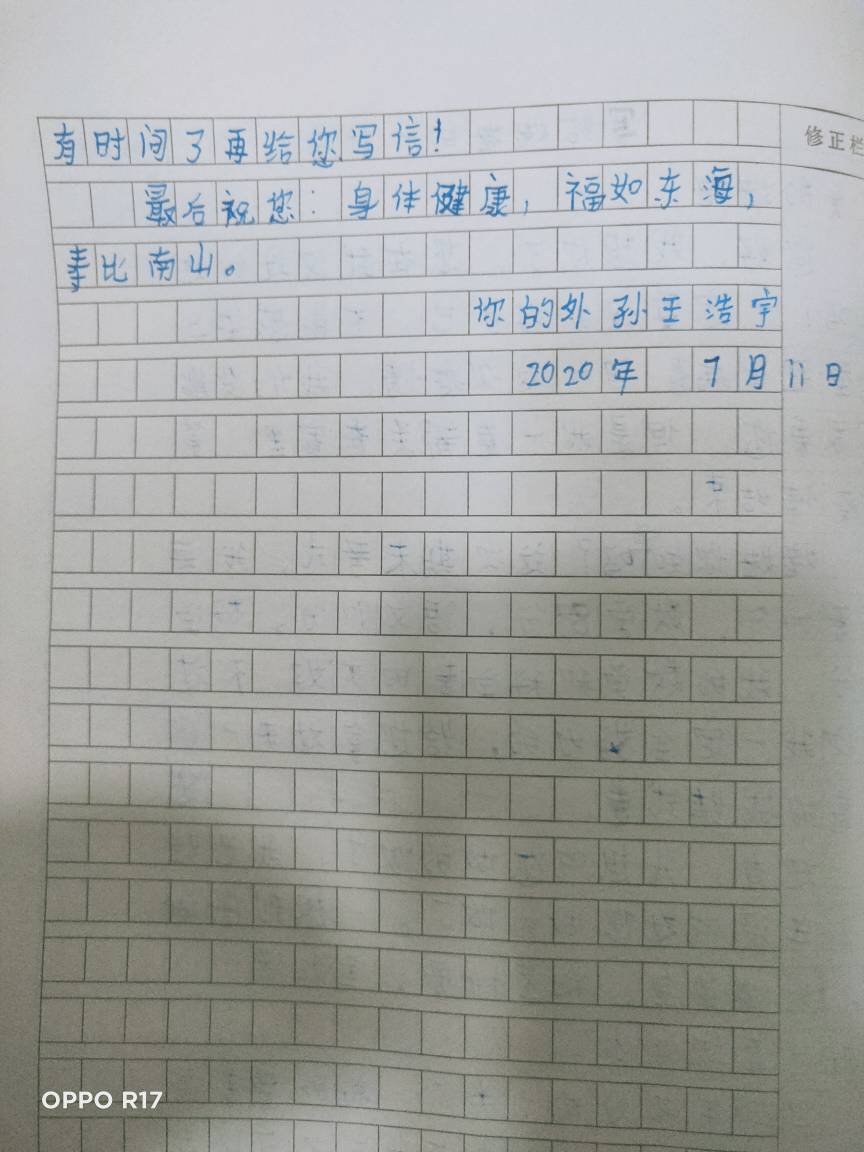 有时间了再给您写信!
最后祝您:身体健康,福如东海,
寿比南山。
你的外孙王浩宇
2020年 7月11日
修正栏
OPPO R17